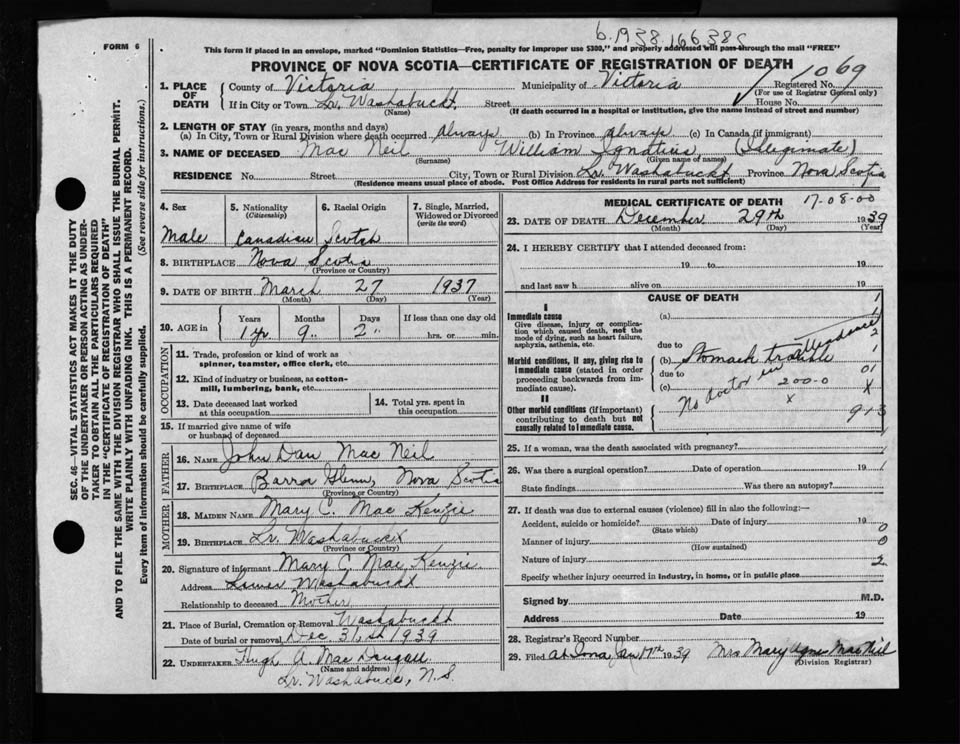 b. 1938.166385
FORM 6
This form if placed in an envelope, marked "Dominion Statistics—Free, penalty for improper use $300," and properly addressed will pass through the mail "FREE"
PROVINCE OF NOVA SCOTIA—CERTIFICATE OF REGISTRATION OF DEATH
1. PLACE OF DEATH
County of Victoria Municipality of Victoria Registered No. 1069
(For use of Registrar General only)
If in City or Town Lr. Washabuckt Street House No.
(Name) (If death occurred in a hospital or institution, give the name instead of street and number)
2. LENGTH OF STAY (in years, months and days)
(a) In City, Town or Rural Division where death occurred always (b) In Province always (c) In Canada (if immigrant)
3. NAME OF DECEASED Mac Neil William Ignatius (Illegimate)
(Surname) (Given name or names)
RESIDENCE No. Street City, Town or Rural Division Lr. Washabuckt Province Nova Scotia
(Residence means usual place of abode. Post Office Address for residents in rural parts not sufficient)
4. Sex
Male
5. Nationality
(Citizenship)
Canadian
6. Racial Origin
Scotch
7. Single, Married, Widowed or Divorced
(write the word)
8. BIRTHPLACE Nova Scotia
(Province or Country)
9. DATE OF BIRTH March 27 1937
(Month) (Day) (Year)
10. AGE in
Years Months Days If less than one day old
1 yr 9 " 2 " hrs. or min.
OCCUPATION
11. Trade, profession or kind of work as
spinner, teamster, office clerk, etc.
12. Kind of industry or business, as cotton-
mill, lumbering, bank, etc.
13. Date deceased last worked
at this occupation
14. Total yrs. spent in
this occupation
15. If married give name of wife
or husband of deceased
FATHER
16. NAME John Dan Mac Neil
17. BIRTHPLACE Barra Glenn, Nova Scotia
(Province or Country)
MOTHER
18. MAIDEN NAME Mary C. Mac Kenzie
19. BIRTHPLACE Lr. Washabuckt
(Province or Country)
20. Signature of informant Mary C. Mac Kenzie
Address Lower Washabuckt
Relationship to deceased Mother
21. Place of Burial, Cremation or Removal Washabuckt
Date of burial or removal Dec 31st 1939
22. UNDERTAKER Hugh A. Mac Dougall
(Name and address)
Lr. Washabuck, N.S.
MEDICAL CERTIFICATE OF DEATH 17-08-00
23. DATE OF DEATH December 29th 1939
(Month) (Day) (Year)
24. I HEREBY CERTIFY that I attended deceased from:
19 to 19
and last saw h alive on 19
CAUSE OF DEATH
I
Immediate cause
Give disease, injury or complica-
tion which caused death, not the
mode of dying, such as heart failure,
asphyxia, asthenia, etc.
(a) 1
due to
Morbid conditions, if any, giving rise to
Immediate cause (stated in order
proceeding backwards from im-
mediate cause).
(b) Stomach trouble 1
due to 01
(c) 200-0 X
No doctor in attendance
X
II
Other morbid conditions (if important)
contributing to death but not
causally related to immediate cause.
9+3
25. If a woman, was the death associated with pregnancy?
26. Was there a surgical operation? Date of operation 19
State findings Was there an autopsy?
27. If death was due to external causes (violence) fill in also the following:—
Accident, suicide or homicide? Date of injury 19 0
(State which)
Manner of injury 0
(How sustained)
Nature of injury 2
Specify whether injury occurred in industry, in home, or in public place
Signed by M.D.
Address Date 19
28. Registrar's Record Number
29. Filed at Iona Jan 17th 1939 Mrs Mary Agnes MacNeil
(Division Registrar)
SEC. 46—VITAL STATISTICS ACT MAKES IT THE DUTY
OF THE UNDERTAKER OR PERSON ACTING AS UNDER-
TAKER TO OBTAIN ALL THE PARTICULARS REQUIRED
IN THE "CERTIFICATE OF REGISTRATION OF DEATH"
AND TO FILE THE SAME WITH THE DIVISION REGISTRAR WHO SHALL ISSUE THE BURIAL PERMIT.
WRITE PLAINLY WITH UNFADING INK. THIS IS A PERMANENT RECORD.
Every item of information should be carefully supplied. (See reverse side for instructions.)